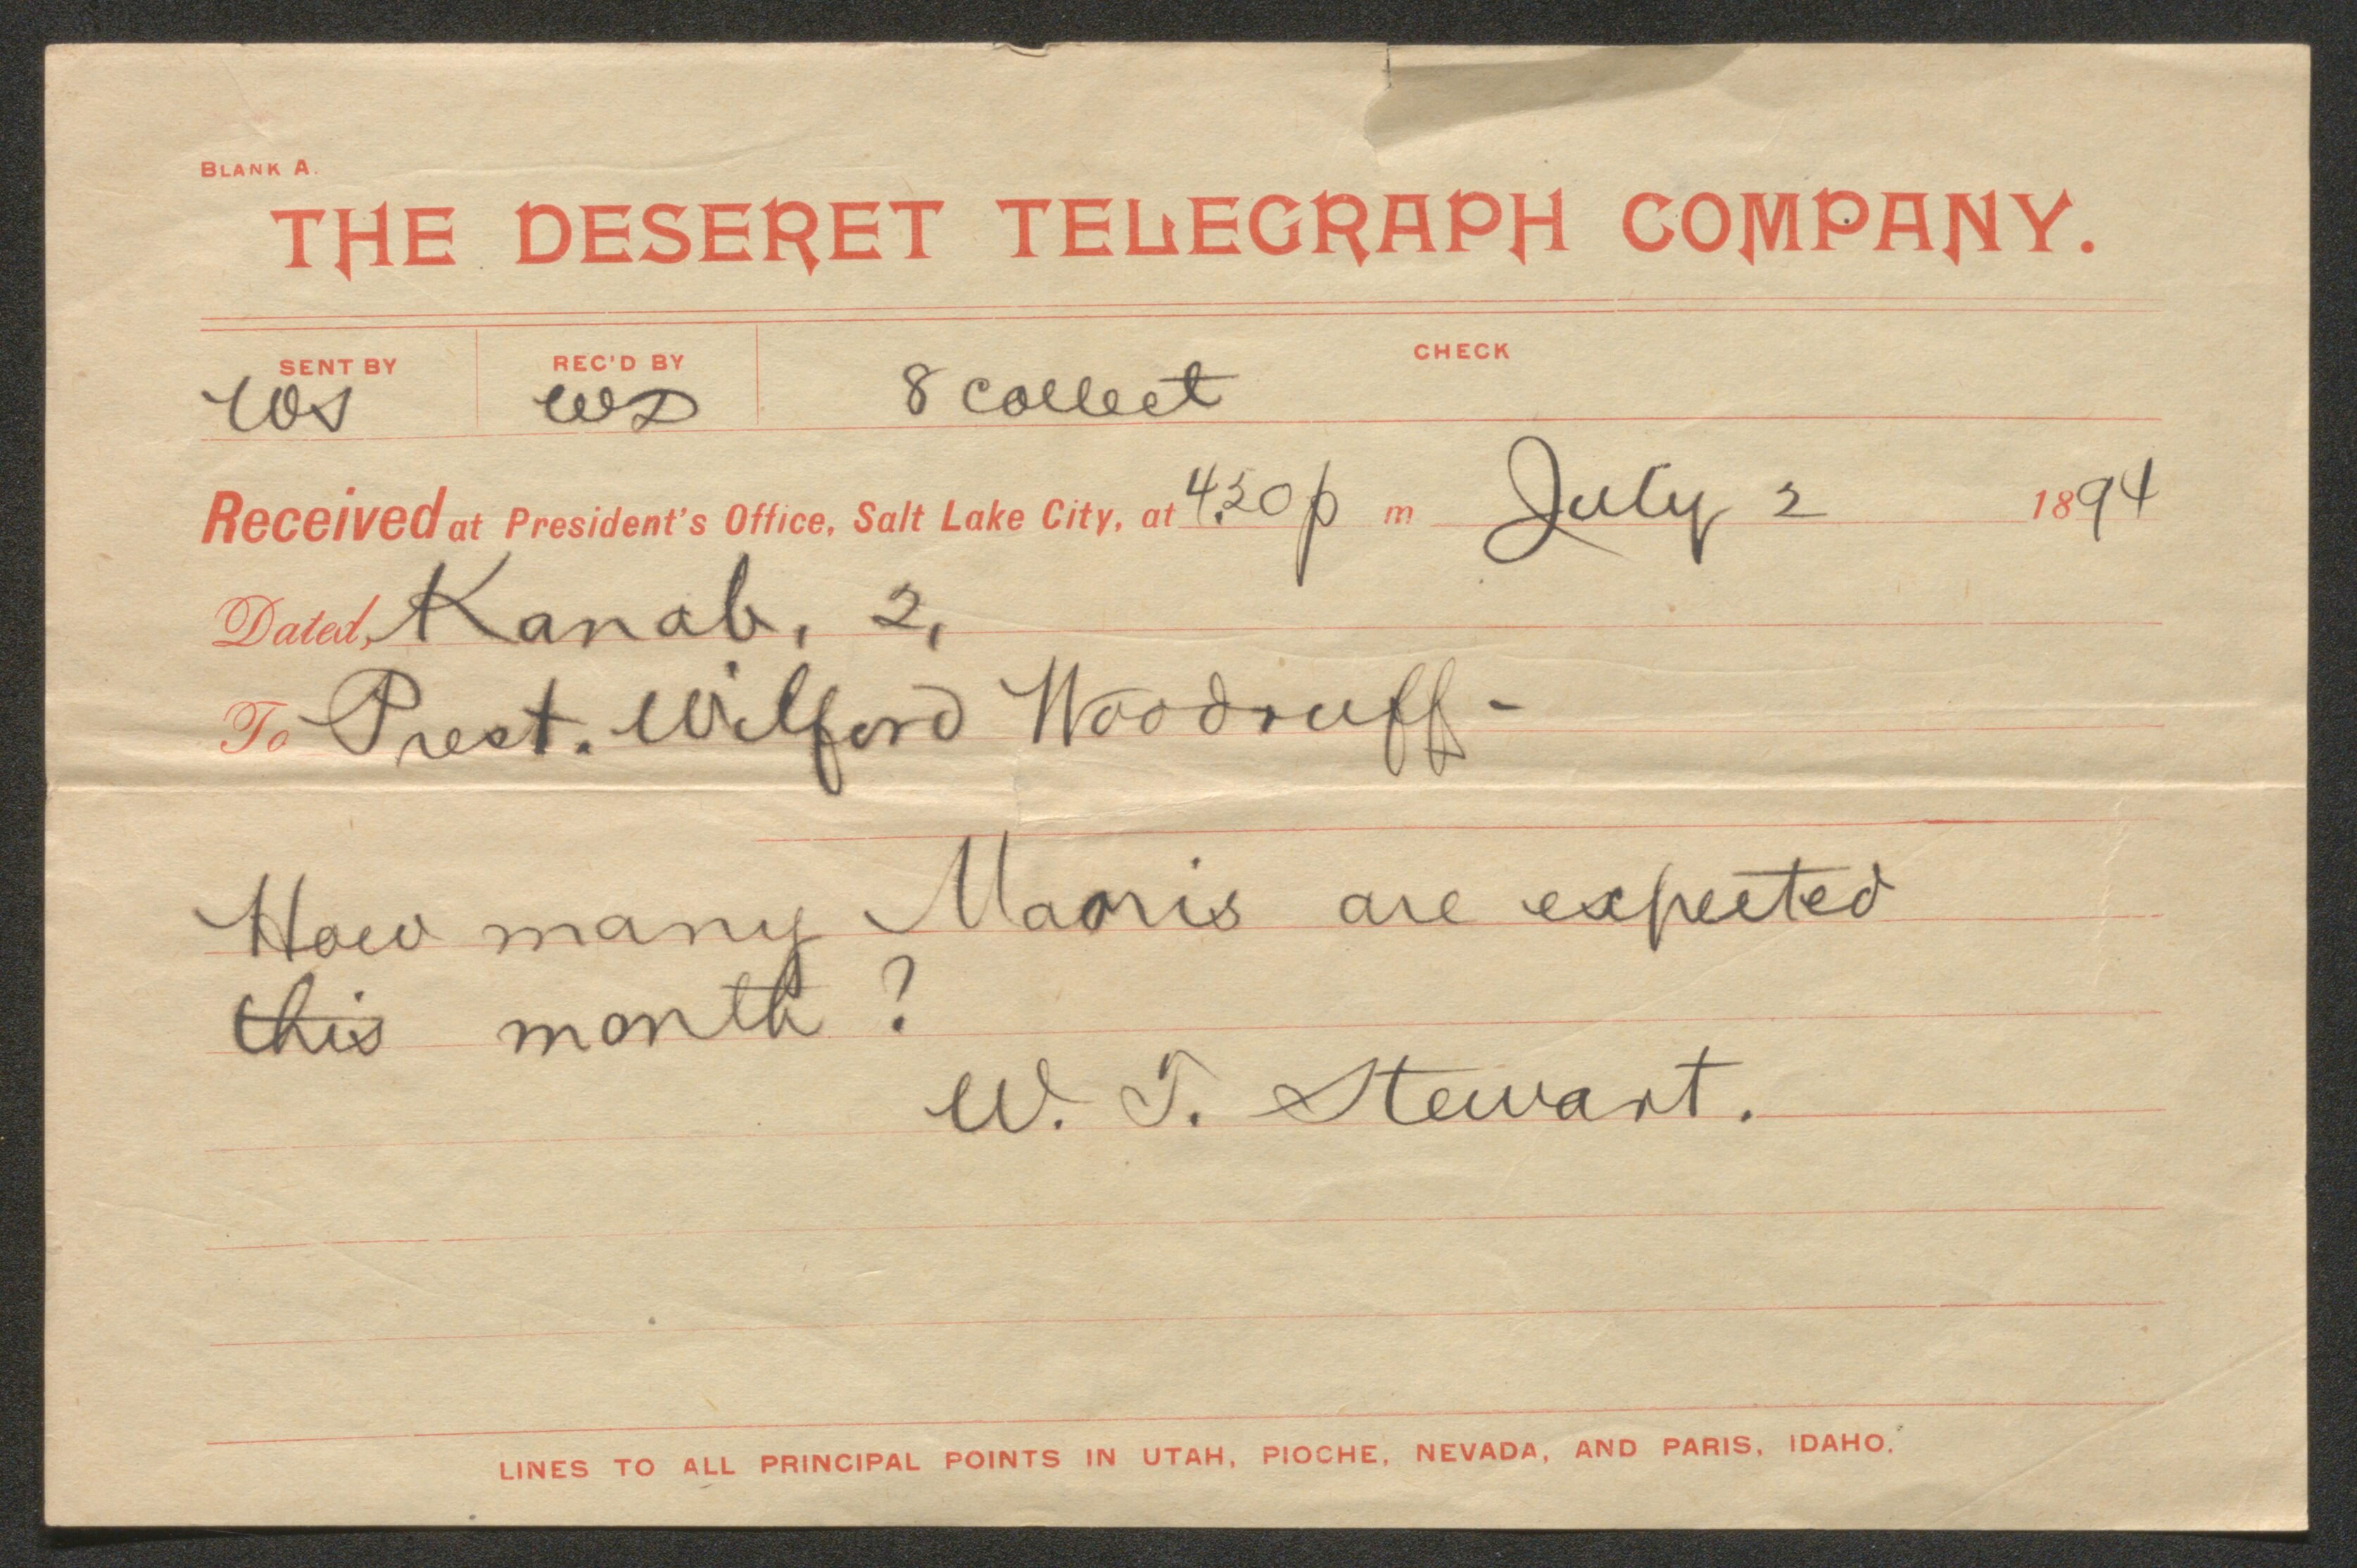 BLANK A.
THE DESERET TELEGRAPH COMPANY.
SENT BY REC'D BY CHECK
WS WD 8 collect
Received at President's Office, Salt Lake City, at 4.50 p m July 2 1894
Dated, Kanab, 2,
To Prest. Wilford Woodruff -
How many Maoris are expected
this month?
W. T. Stewart.
LINES TO ALL PRINCIPAL POINTS IN UTAH, PIOCHE, NEVADA, AND PARIS, IDAHO.